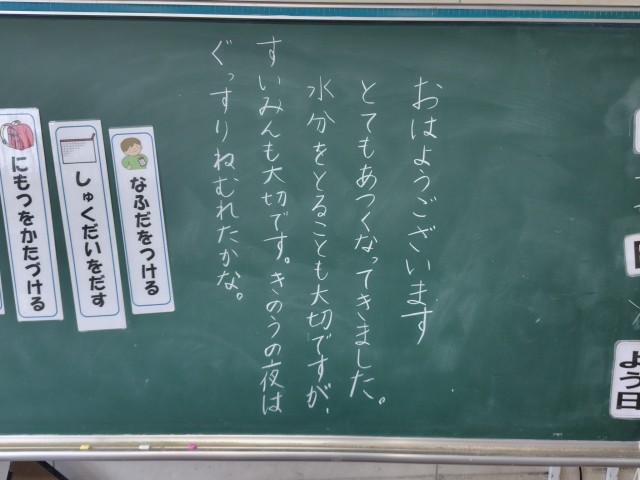 おはようございます
とてもあつくなってきました。
水分をとることも大切ですが、
すいみんも大切です。きのうの夜は
ぐっすりねむれたかな。
なふだをつける
しゅくだいをだす
にもつをかたづける
よう日